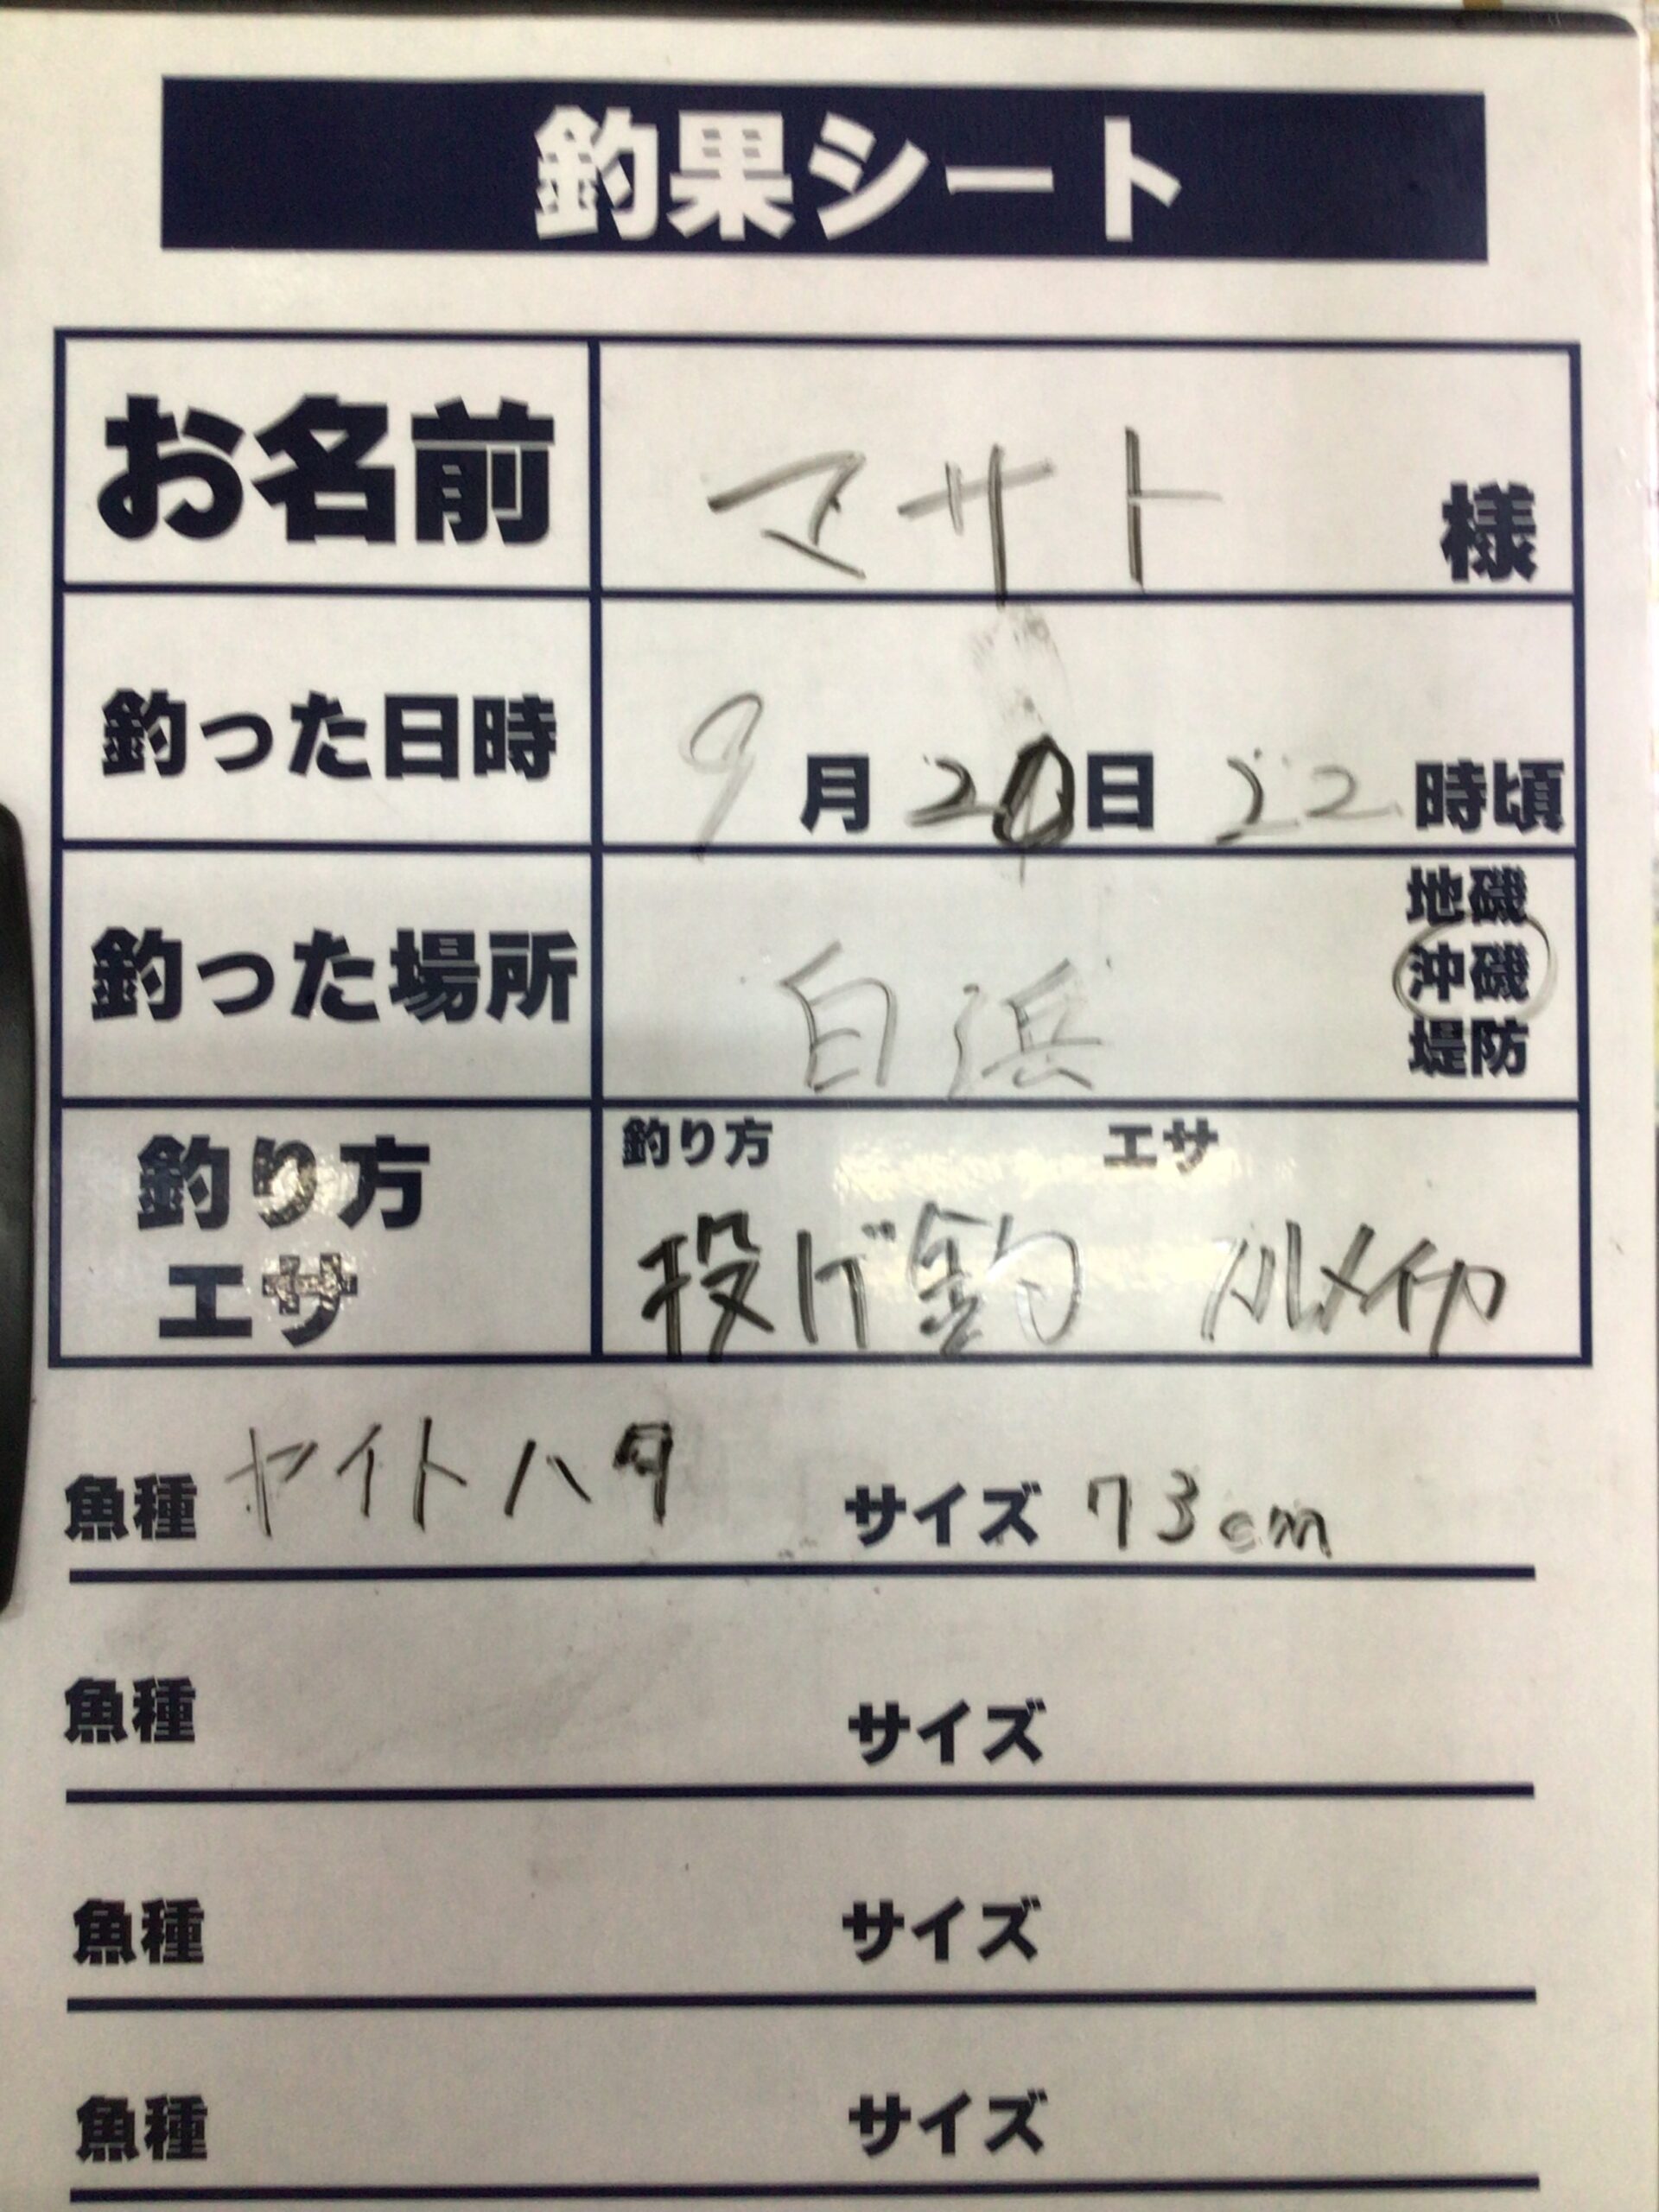 釣果シート
お名前 マサト 様
釣った日時 9月20日 22時頃
釣った場所 白浜 地磯
沖磯
堤防
釣り方 エサ
釣り方 投げ釣
エサ
魚種 ヤイトハタ サイズ 73cm
魚種 サイズ
魚種 サイズ
魚種 サイズ